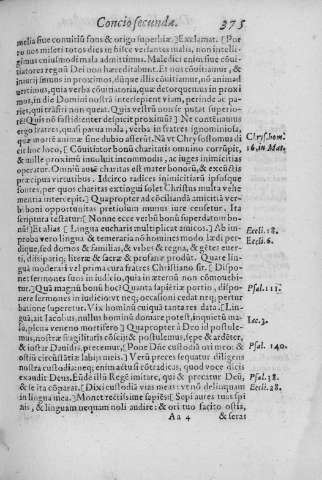 Concio secundæ. 375
melia siue conuitiũ fons & origo superbiæ. ]Exclamat. [ Por
ro nos miseri totos dies in hisce versantes malis, non intelli-
gimus cuiusmodi mala admittimus. Maledici enim, siue cõui-
tiatores regnũ Dei non hæreditabunt. Et nos cõuitiamur, &
iniurij sumus in proximũ, nõ animaduertimus, nõ animad
uertimus, quia verba cõuitiatoria, quæ detorquemus in proxi
mũ, in die Domini nostrã intersepient viam, perinde ac pa-
ries, qui trãsiri non queat. Quis vestrũ non se putat superio-
rẽ? Quis nõ fastidienter despicit proximũ? ] Ne contẽnamus
ergo fratres, quasi parua mala, verba in fratres ignominiosa,
quæ mortẽ animæ sine dubio afferũt. Nã vt Chrysostomus di
cit huc loco, [ Cõuitiũ bonũ charitatis omnino corrũpit,
& mille proximũ inuoluit incommodis, ac iuges inimicitias
operatur. Omniũ autẽ charitas est mater bonorũ, & excustis
præcipua virtutibus. Idcirco radices inimicitiarũ ipsosque
fontes, per quos charitas extingui solet Christus multa vehe
mentia intercepit.] Quapropter addẽdi amicitia ver-
bi boni opportunitas pretiolum munus iure censetur. Ita
scriptura testatur [ Nonne ecce verbũ bonũ superdatum bo-
nũ? ] Et alias [ Lingua eucharis multiplicat amicos.] Ab im-
proba vero lingua & temeraria nõ homines modo lædi per-
dique, sed domos & familias, & vrbes & regna, & gẽtes euer-
ti, dissipatiq; literæ & sacræ & profanæ produt. Quare lin-
guã moderari vel prima cura fratres Christiano sit. [ Dispo-
net sermones suos in iudicio, quia in æternũ non cõmouebi-
tur.] Quã magnũ bonũ hoc? Quanta sapiẽtiæ portio, dispo
nere sermones in iudicio: vt neq; occasioni cedat neq; pertur
batione superetur. Vix hominũ cuiquã tanta res data. [ Lin-
guã, ait Iacobus, nullus hominũ domare potest, inquietũ ma-
lũ, plena veneno mortifero ] Quapropter à Deo id postule-
mus, nostræ fragilitatis cõscij: & postulemus, sæpe & ardẽter,
& iostar Dauidis, precemur, [ Pone Dñe custodiã ori meo: &
ostiũ circũstãtiæ labijs meis. ] Verũ preces sequatur diligens
nostra custodia: neq; enim actu sit cõtradicas, quod voce dicis
exaudit Deus. Eũde illũ Regẽ imitare, qui & precatur Deũ,
& se ita cõparat. [ Dixi custodiã vias meas: vt nõ delinquam
in lingua mea. ] Monet rectissime sapiẽs: [ Sepi aures tuas spi
nis, & linguam nequam noli audire: & ori tuo facito ostia,
Aa 4 & seras
Chrysost. hom.
16. in Mat.
Eccli. 18.
Eccli. 6.
Psal. 111.
Iac. 3.
Psal. 140.
Psal. 38.
Eccli. 28.